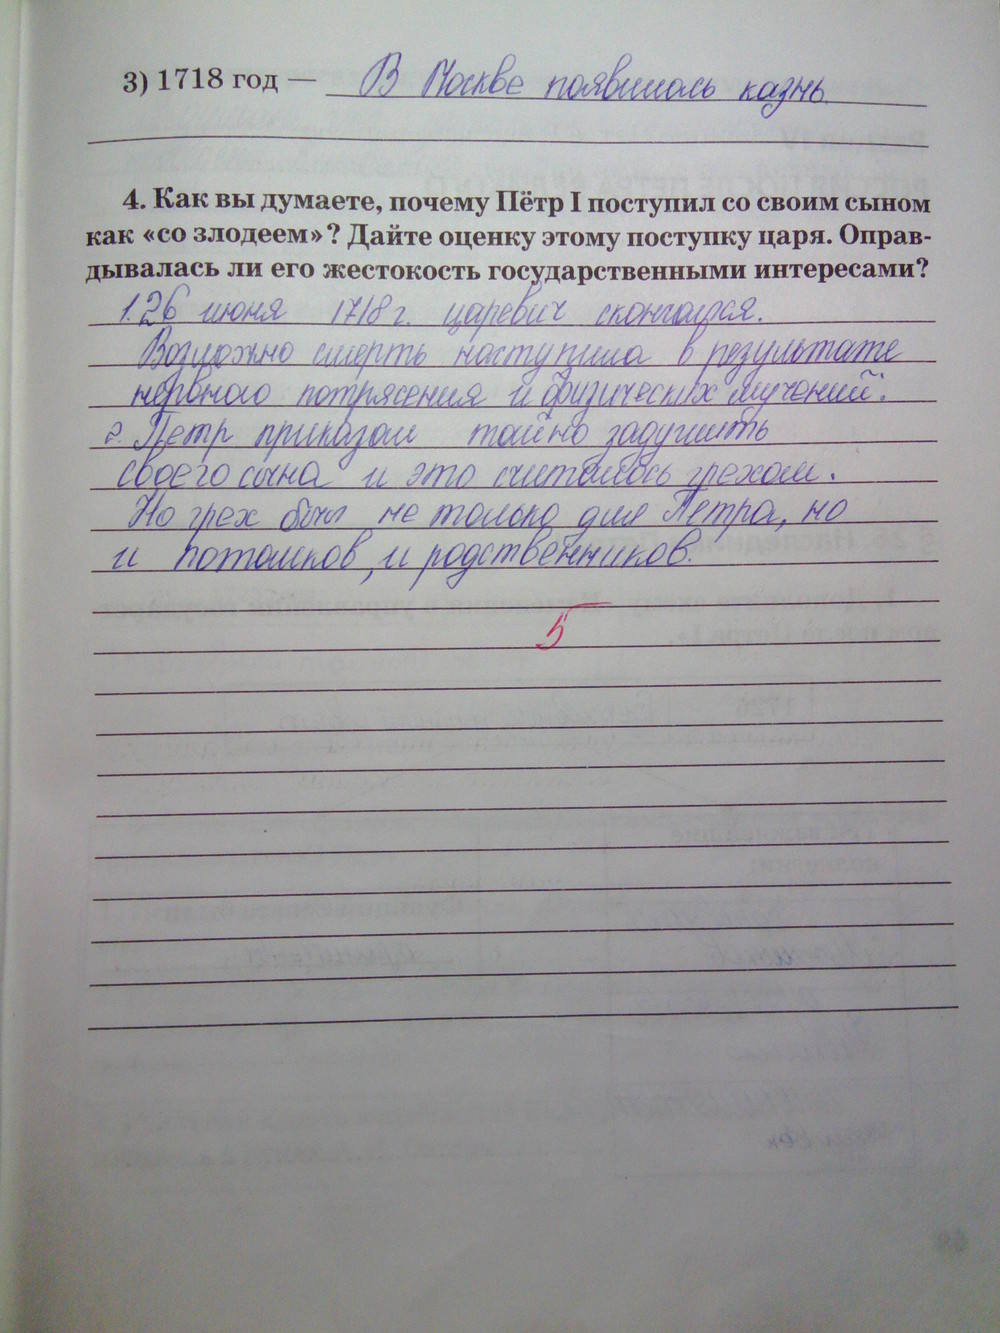 3) 1718 год — В Москве появилась казнь.
4. Как вы думаете, почему Пётр I поступил со своим сыном
как «со злодеем»? Дайте оценку этому поступку царя. Оправ-
дывалась ли его жестокость государственными интересами?
1. 26 июня 1718 г. царевич скончался.
Возможно смерть наступила в результате
нервного потрясения и физических мучений.
2. Петр приказал тайно задушить
своего сына и это считалось грехом.
Но грех был не только для Петра, но
и потомков, и родственников.
5